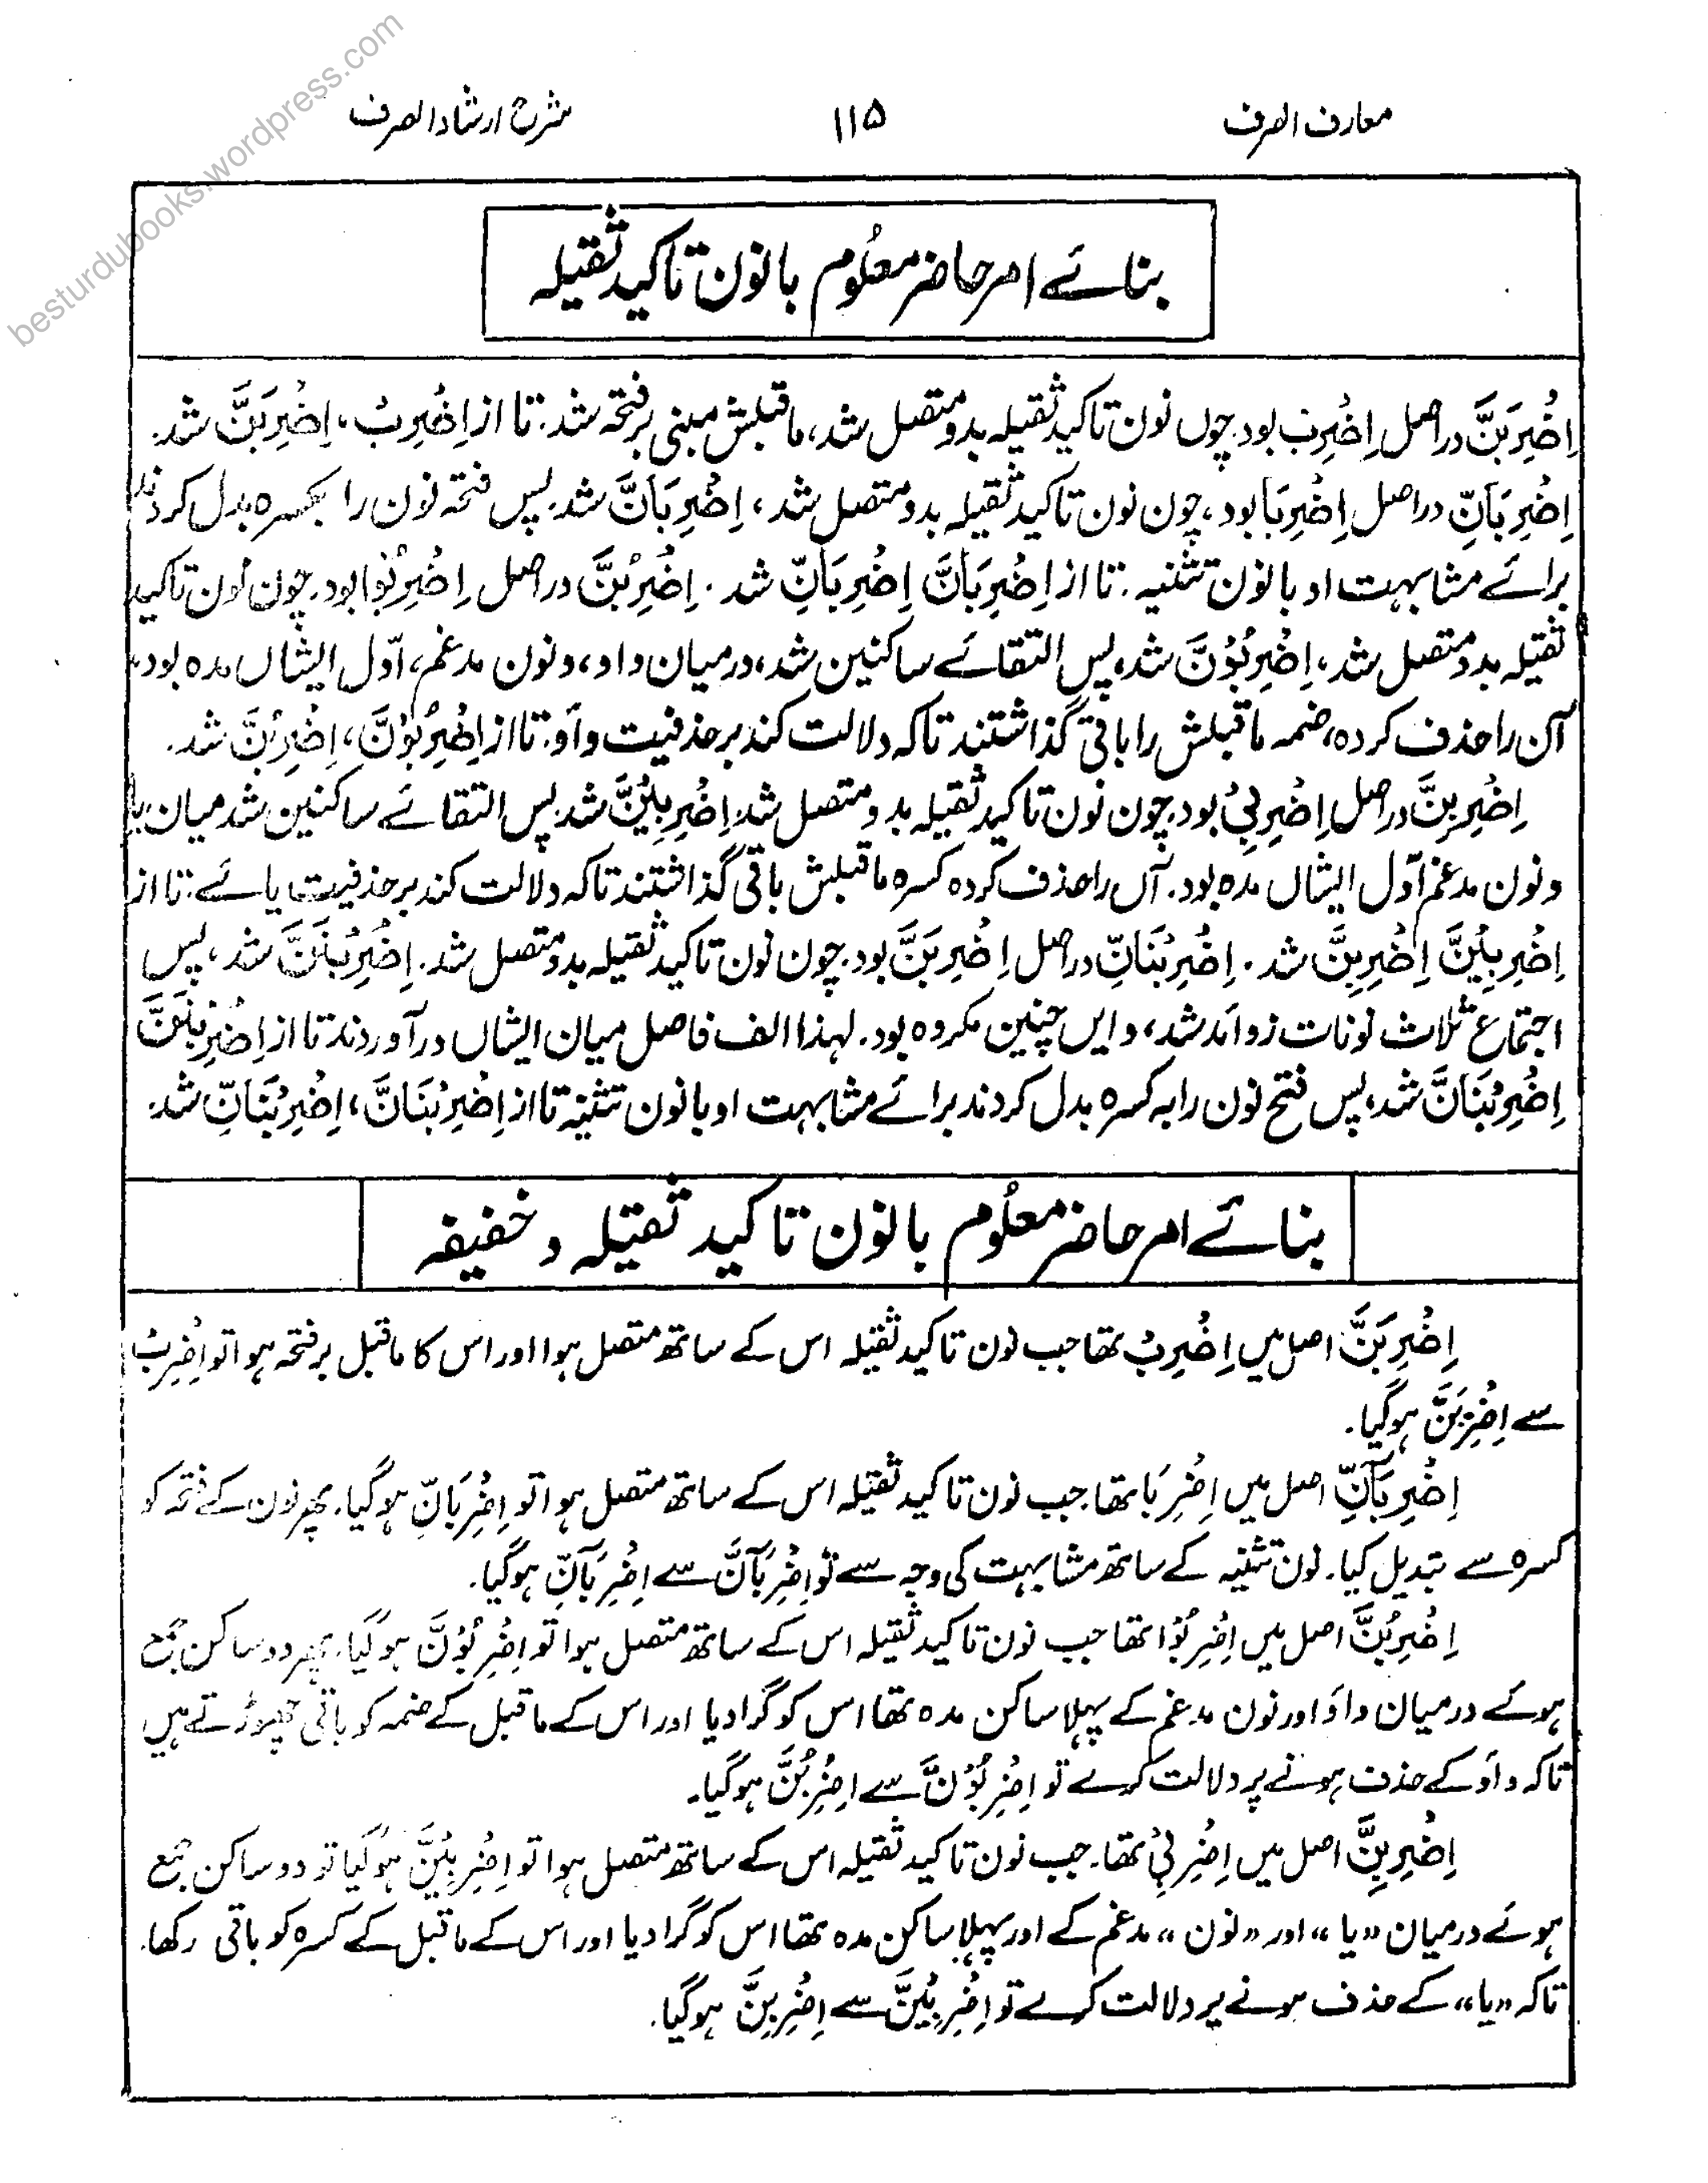 معارف الصرف
۱۱۵
شرح ارشاد الصرف
besturdubooks.wordpress.com
بنائے امر حاضر معلُوم بانون تاکید ثقیلہ
اِضْرِبَنَّ دراصل اِضْرِبْ بود. چوں نون تاکید ثقیلہ بدو متصل شد، ماقبلش مبنی برفتحہ شد. تا از اِضْرِبْ، اِضْرِبَنَّ شد.
اِضْرِبَانِّ دراصل اِضْرِبَا بود، چون نون تاکید ثقیلہ بدو متصل شد، اِضْرِبَانَّ شد. پس فتحہ نون را بکسرہ بدل کردند
برائے مشابہت او بانون تثنیہ. تا از اِضْرِبَانَّ اِضْرِبَانِّ شد. اِضْرِبُنَّ دراصل اِضْرِبُوْا بود. چون نون تاکید
ثقیلہ بدو متصل شد، اِضْرِبُوْنَّ شد، پس التقائے ساکنین شد، درمیان واو، ونون مدغم، اوّل ایشاں مدہ بود،
آن را حذف کردہ، ضمہ ماقبلش را باقی گذاشتند تاکہ دلالت کند برحذفیت واؤ. تا از اِضْرِبُوْنَّ، اِضْرِبُنَّ شد.
اِضْرِبِنَّ دراصل اِضْرِبِیْ بود. چون نون تاکید ثقیلہ بدو متصل شد. اِضْرِبِیْنَّ شد. پس التقائے ساکنین شد میان یا
ونون مدغم اوّل ایشاں مدہ بود. آں را حذف کردہ کسرہ ماقبلش باقی گذاشتند تاکہ دلالت کند برحذفیت یائے. تا از
اِضْرِبِیْنَّ اِضْرِبِنَّ شد. اِضْرِبْنَانِّ دراصل اِضْرِبْنَ بود. چون نون تاکید ثقیلہ بدو متصل شد. اِضْرِبْنَنَّ شد، پس
اجتماع ثلاث نونات زوائد شد، وایں چنین مکروہ بود. لہذا الف فاصل میان ایشاں درآوردند تا از اِضْرِبْنَنَّ
اِضْرِبْنَانَّ شد، پس فتح نون را بہ کسرہ بدل کردند برائے مشابہت او بانون تثنیہ تا از اِضْرِبْنَانَّ، اِضْرِبْنَانِّ شد.
بنائے امر حاضر معلُوم بانون تاکید ثقیلہ و خفیفہ
اِضْرِبَنَّ اصل میں اِضْرِبْ تھا جب نون تاکید ثقیلہ اس کے ساتھ متصل ہوا اور اس کا ماقبل برفتحہ ہوا تو اِضْرِبْ
سے اِضْرِبَنَّ ہوگیا.
اِضْرِبَآنِّ اصل میں اِضْرِبَا تھا. جب نون تاکید ثقیلہ اس کے ساتھ متصل ہوا تو اِضْرِبَانَّ ہوگیا. پھر نون کے فتحہ کو
کسرہ سے تبدیل کیا. نون تثنیہ کے ساتھ مشابہت کی وجہ سے تو اِضْرِبَآنَّ سے اِضْرِبَآنِّ ہوگیا.
اِضْرِبُنَّ اصل میں اِضْرِبُوْا تھا جب نون تاکید ثقیلہ اس کے ساتھ متصل ہوا تو اِضْرِبُوْنَّ ہوگیا. پھر دو ساکن جمع
ہوئے درمیان واؤ اور نون مدغم کے پہلا ساکن مدہ تھا اس کو گرا دیا اور اس کے ماقبل کے ضمہ کو باقی چھوڑتے ہیں
تاکہ واؤ کے حذف ہونے پر دلالت کرے تو اِضْرِبُوْنَّ سے اِضْرِبُنَّ ہوگیا.
اِضْرِبِنَّ اصل میں اِضْرِبِیْ تھا. جب نون تاکید ثقیلہ اس کے ساتھ متصل ہوا تو اِضْرِبِیْنَّ ہوگیا تو دو ساکن جمع
ہوئے درمیان "یا" اور "نون" مدغم کے اور پہلا ساکن مدہ تھا اس کو گرا دیا اور اس کے ماقبل کے کسرہ کو باقی رکھا.
تاکہ "یا" کے حذف ہونے پر دلالت کرے تو اِضْرِبِیْنَّ سے اِضْرِبِنَّ ہوگیا.